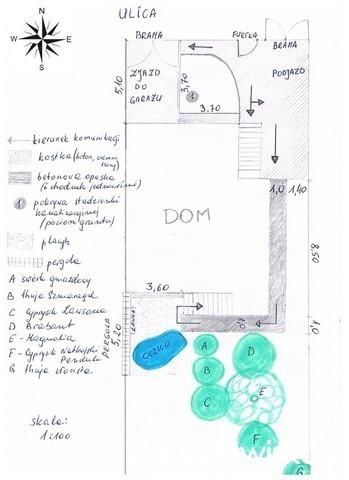 ULICA
N
W
E
S
BRAMA
FURTKA
BRAMA
ZJAZD
DO
GARAŻU
5,10
3,70
1
3,70
PODJAZD
kierunek komunikacji
kostka (beton, ciemno
szary)
betonowa opaska
(i chodnik jednocześnie)
1
pokrywa studzienki
kanalizacyjnej
(poziom gruntu)
płyta
pergola
A świerk gniazdowy
B thuja Szmaragd
C Cyprys Lawsona
D Brabant
E - Magnolia
F - Cyprys Nutkajski
Pendula
G thuja
skala:
1:100
DOM
1,0
1,40
8,50
1,0
3,60
PERGOLA
5,20
ŁAWKA
OCZKO
A
B
C
D
E
F
G